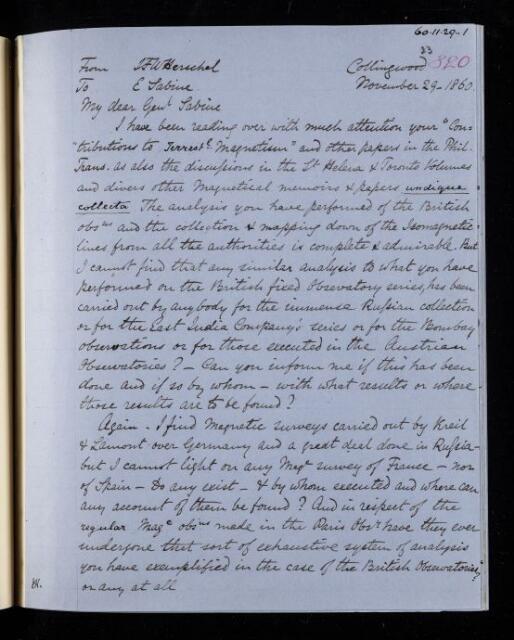 60·11·29·1
33
820
From J F W Herschel Collingwood
To E Sabine November 29 - 1860
My dear Genl Sabine
I have been reading over with much attention your "Con-
"tributions to Terrestl Magnetism" and other papers in the Phil.
Trans. as also the discussions in the St Helena & Toronto Volumes
and divers other Magnetical memoirs & papers undique
collecta The analysis you have performed of the British
obsns and the collection & mapping down of the Isomagnetic
lines from all the authorities is complete & admirable. But
I cannot find that any similar analysis to what you have
performed on the British fixed Observatory series, has been
carried out by anybody for the immense Russian collection
or for the East India Company's series or for the Bombay
observations or for those executed in the Austrian
Observatories? - Can you inform me if this has been
done and if so by whom - with what results or where
those results are to be found?
Again - I find Magnetic surveys carried out by Kreil
& Lamont over Germany and a great deal done in Russia -
but I cannot light on any Magc survey of France - nor
of Spain - Do any exist - & by whom executed and where can
any account of them be found? And in respect of the
regular Magc obsns made in the Paris Obsy have they ever
undergone that sort of exhaustive system of analysis
you have exemplified in the case of the British Observatories,
or any at all